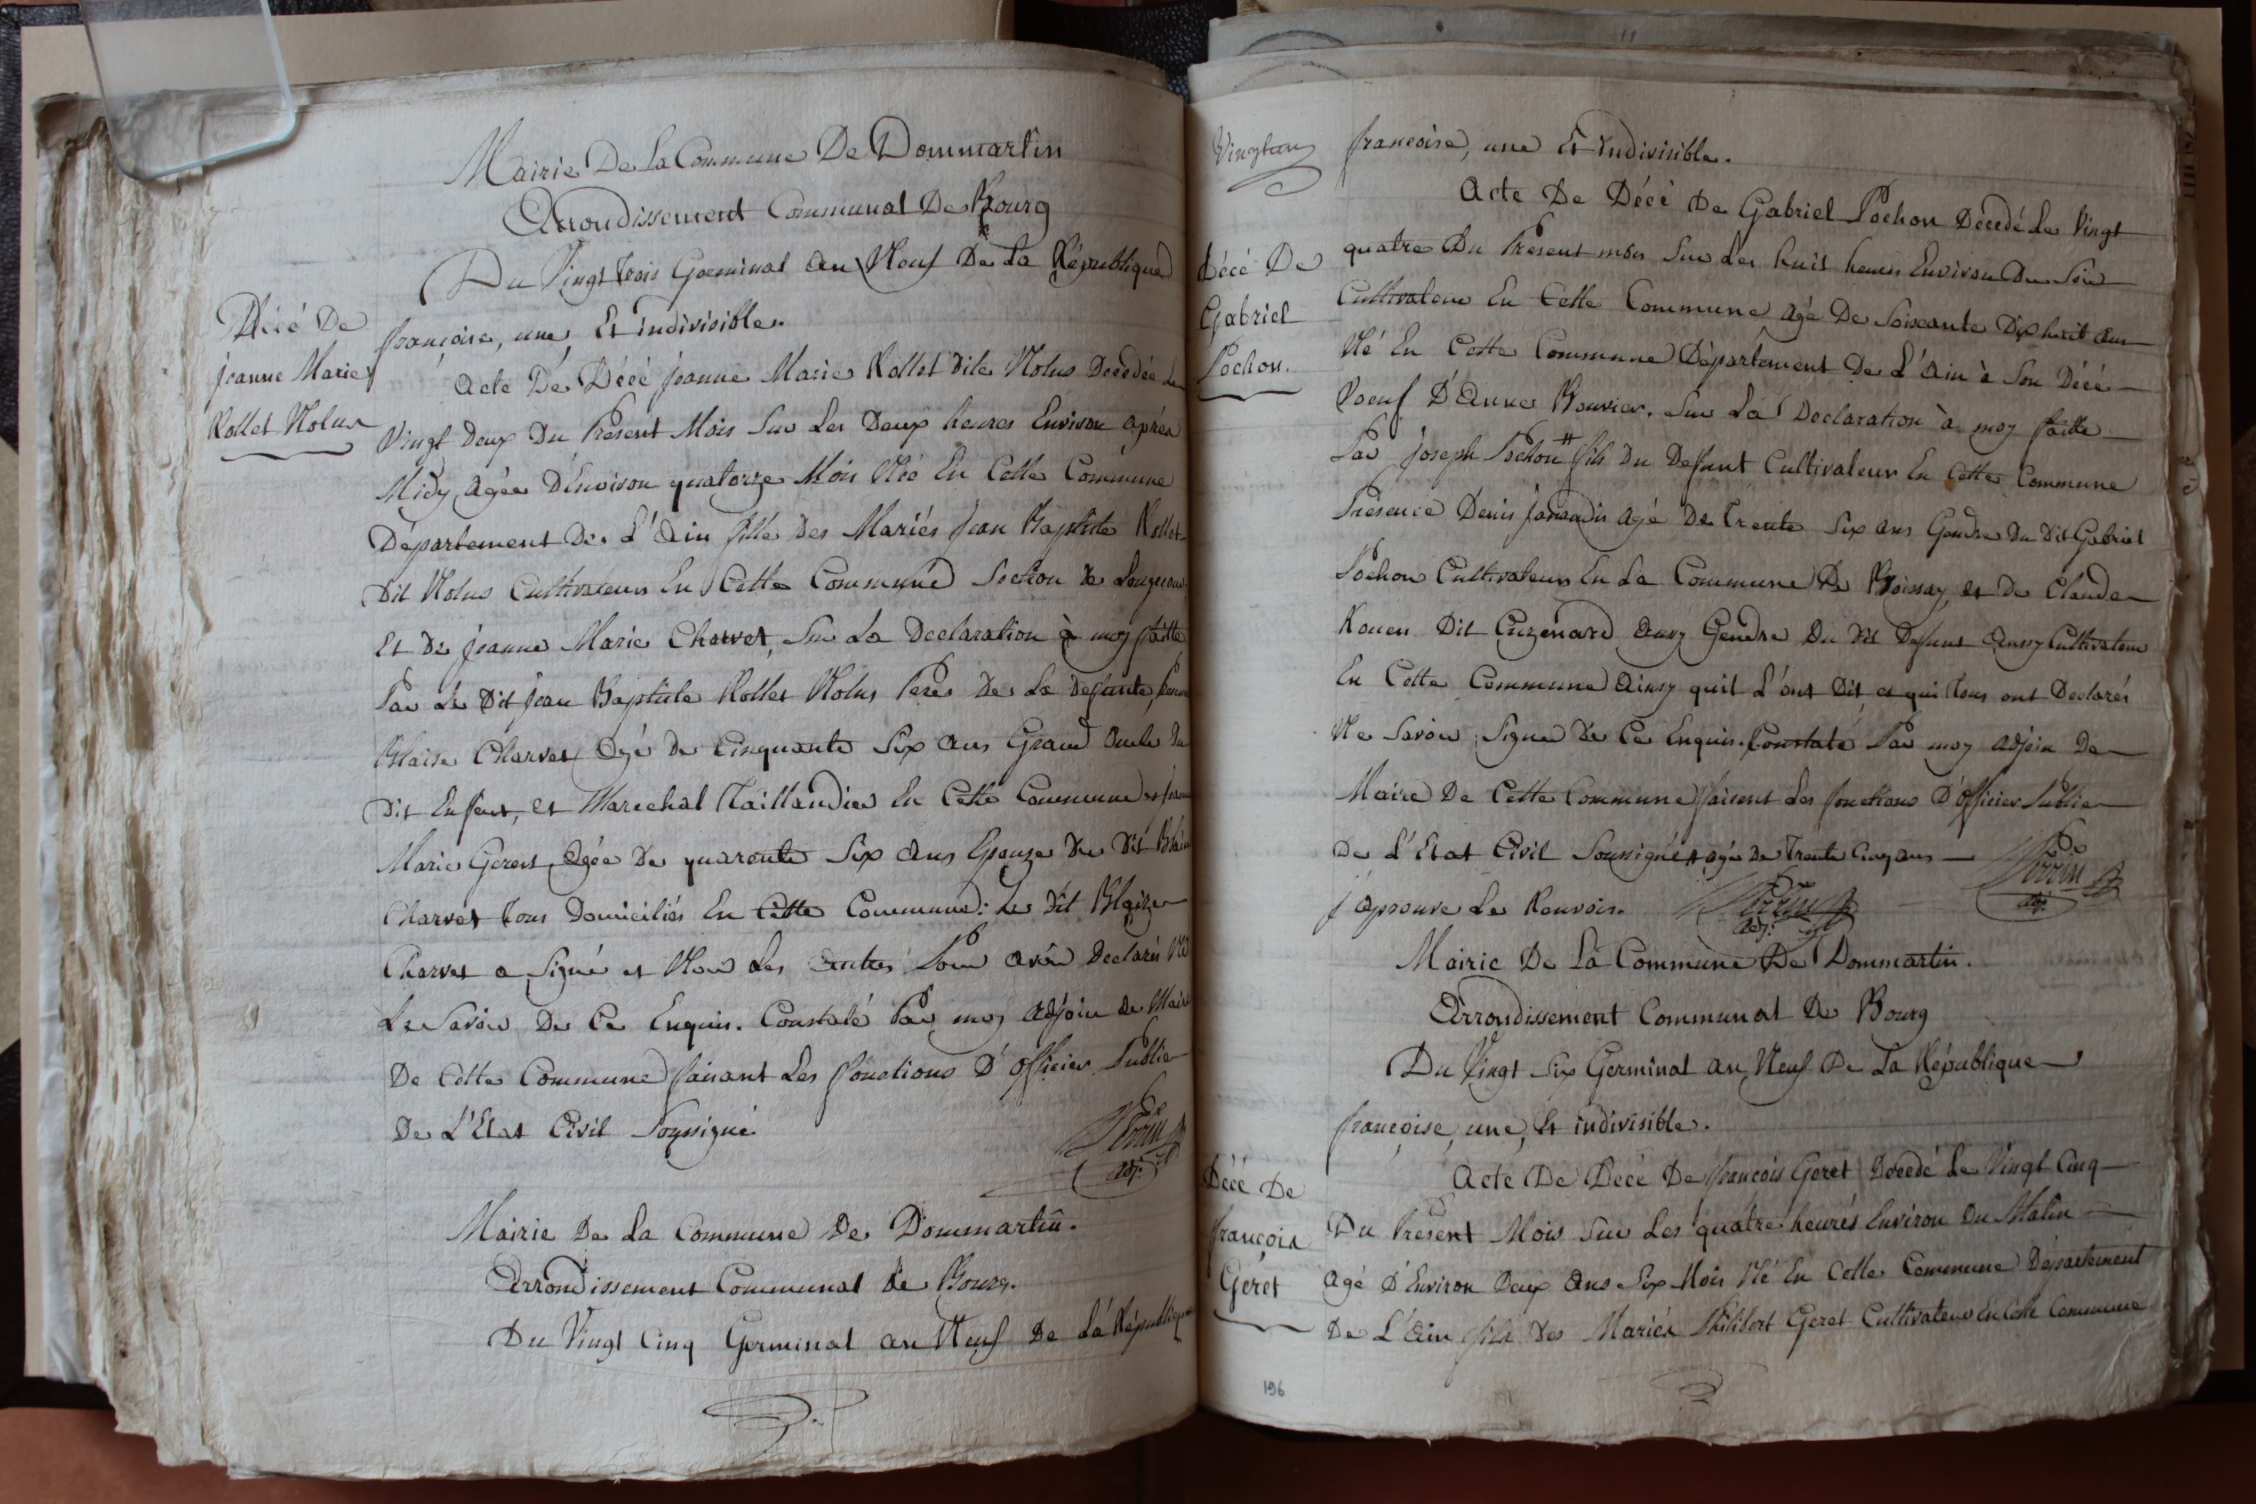 Mairie De La Commune De Dommartin
Arrondissement Communal De Bourg
Du Vingt trois Germinal an Neuf De la République
françoise, une, Et indivisible.
Décé De
Jeanne Marie
Rollet Nolus
Acte De Décé Jeanne Marie Rollet dite Nolus Decedée Le
Vingt Deux Du Présent Mois Sur Les Deux heures Environ après
Midy, Agée D'Environ quatorze Mois Née En Cette Commune
Département De L'Ain fille Des Mariés Jean Baptiste Rollet
Dit Nolus Cultivateur En Cette Commune Section de
Et De Jeanne Marie Charvet, Sur La Declaration à moy faitte
Par Le Dit Jean Baptiste Rollet Nolus Pere De La Defunte,
Blaise Charvet Agé de Cinquante Six ans Grand oncle Du
Dit Enfant, et Marechal Taillandier En Cette Commune et
Marie Geret Agée De quarente Six ans Epouze Du Dit
Charvet tous Domiciliés En Cette Commune: Le Dit Blaize
Charvet a Signé et Non Les autres Pour avoir Declarés Ne
Le Savoir De Ce Enquis. Constaté Par moy Adjoin de Maire
De Cette Commune faisant Les fonctions D'Officier Public
De L'Etat Civil Soussigné
Perrin
adj.
Mairie De La Commune De Dommartin.
Arrondissement Communal de Bourg.
Du Vingt Cinq Germinal an Neuf De La République
Vingtun
françoise, une Et indivisible.
Décé De
Gabriel
Pochon.
Acte De Décé De Gabriel Pochon Décedé Le Vingt
quatre Du Présent mois Sur Les huit heures Environ Du Soir
Cultivateur En Cette Commune agé De Soixante Dix huit ans
Né En Cette Commune Département De L'Ain à Son Décé
Voeuf D'Anne Bouvier. Sur La Declaration à moy faitte
Par Joseph Pochon # fils Du Defunt Cultivateur En Cette Commune
Présence Denis Janaudin Agé De Trente Six ans Gendre Du Dit Gabriel
Pochon Cultivateur En La Commune De Boissay, et De Claude
Rouen Dit Cuzenard Aussy Gendre Du Dit Defunt Aussy Cultivateur
En Cette Commune Ainsy quil L'ont Dit, et qui tous ont Declarés
Ne Savoir Signer De Ce Enquis. Constaté Par moy Adjoin De
Maire De Cette Commune faisant Les fonctions D'Officier Public
De L'Etat Civil Soussigné # agé De Trente Cinq ans
Perrin
adj.
J'aprouve Le Renvois.
Perrin
adj.
Mairie De La Commune De Dommartin.
Arrondissement Communal De Bourg
Du Vingt Six Germinal an Neuf De La République
françoise, une, Et indivisible.
Décé De
françois
Geret
Acte De Décé De françois Geret Décedé Le Vingt Cinq
Du Présent Mois Sur Les quatre heures Environ Du Matin
Agé D'Environ Deux Ans Six Mois Né En Cette Commune Département
De L'Ain fils Des Mariés Philibert Geret Cultivateur En Cette Commune
196